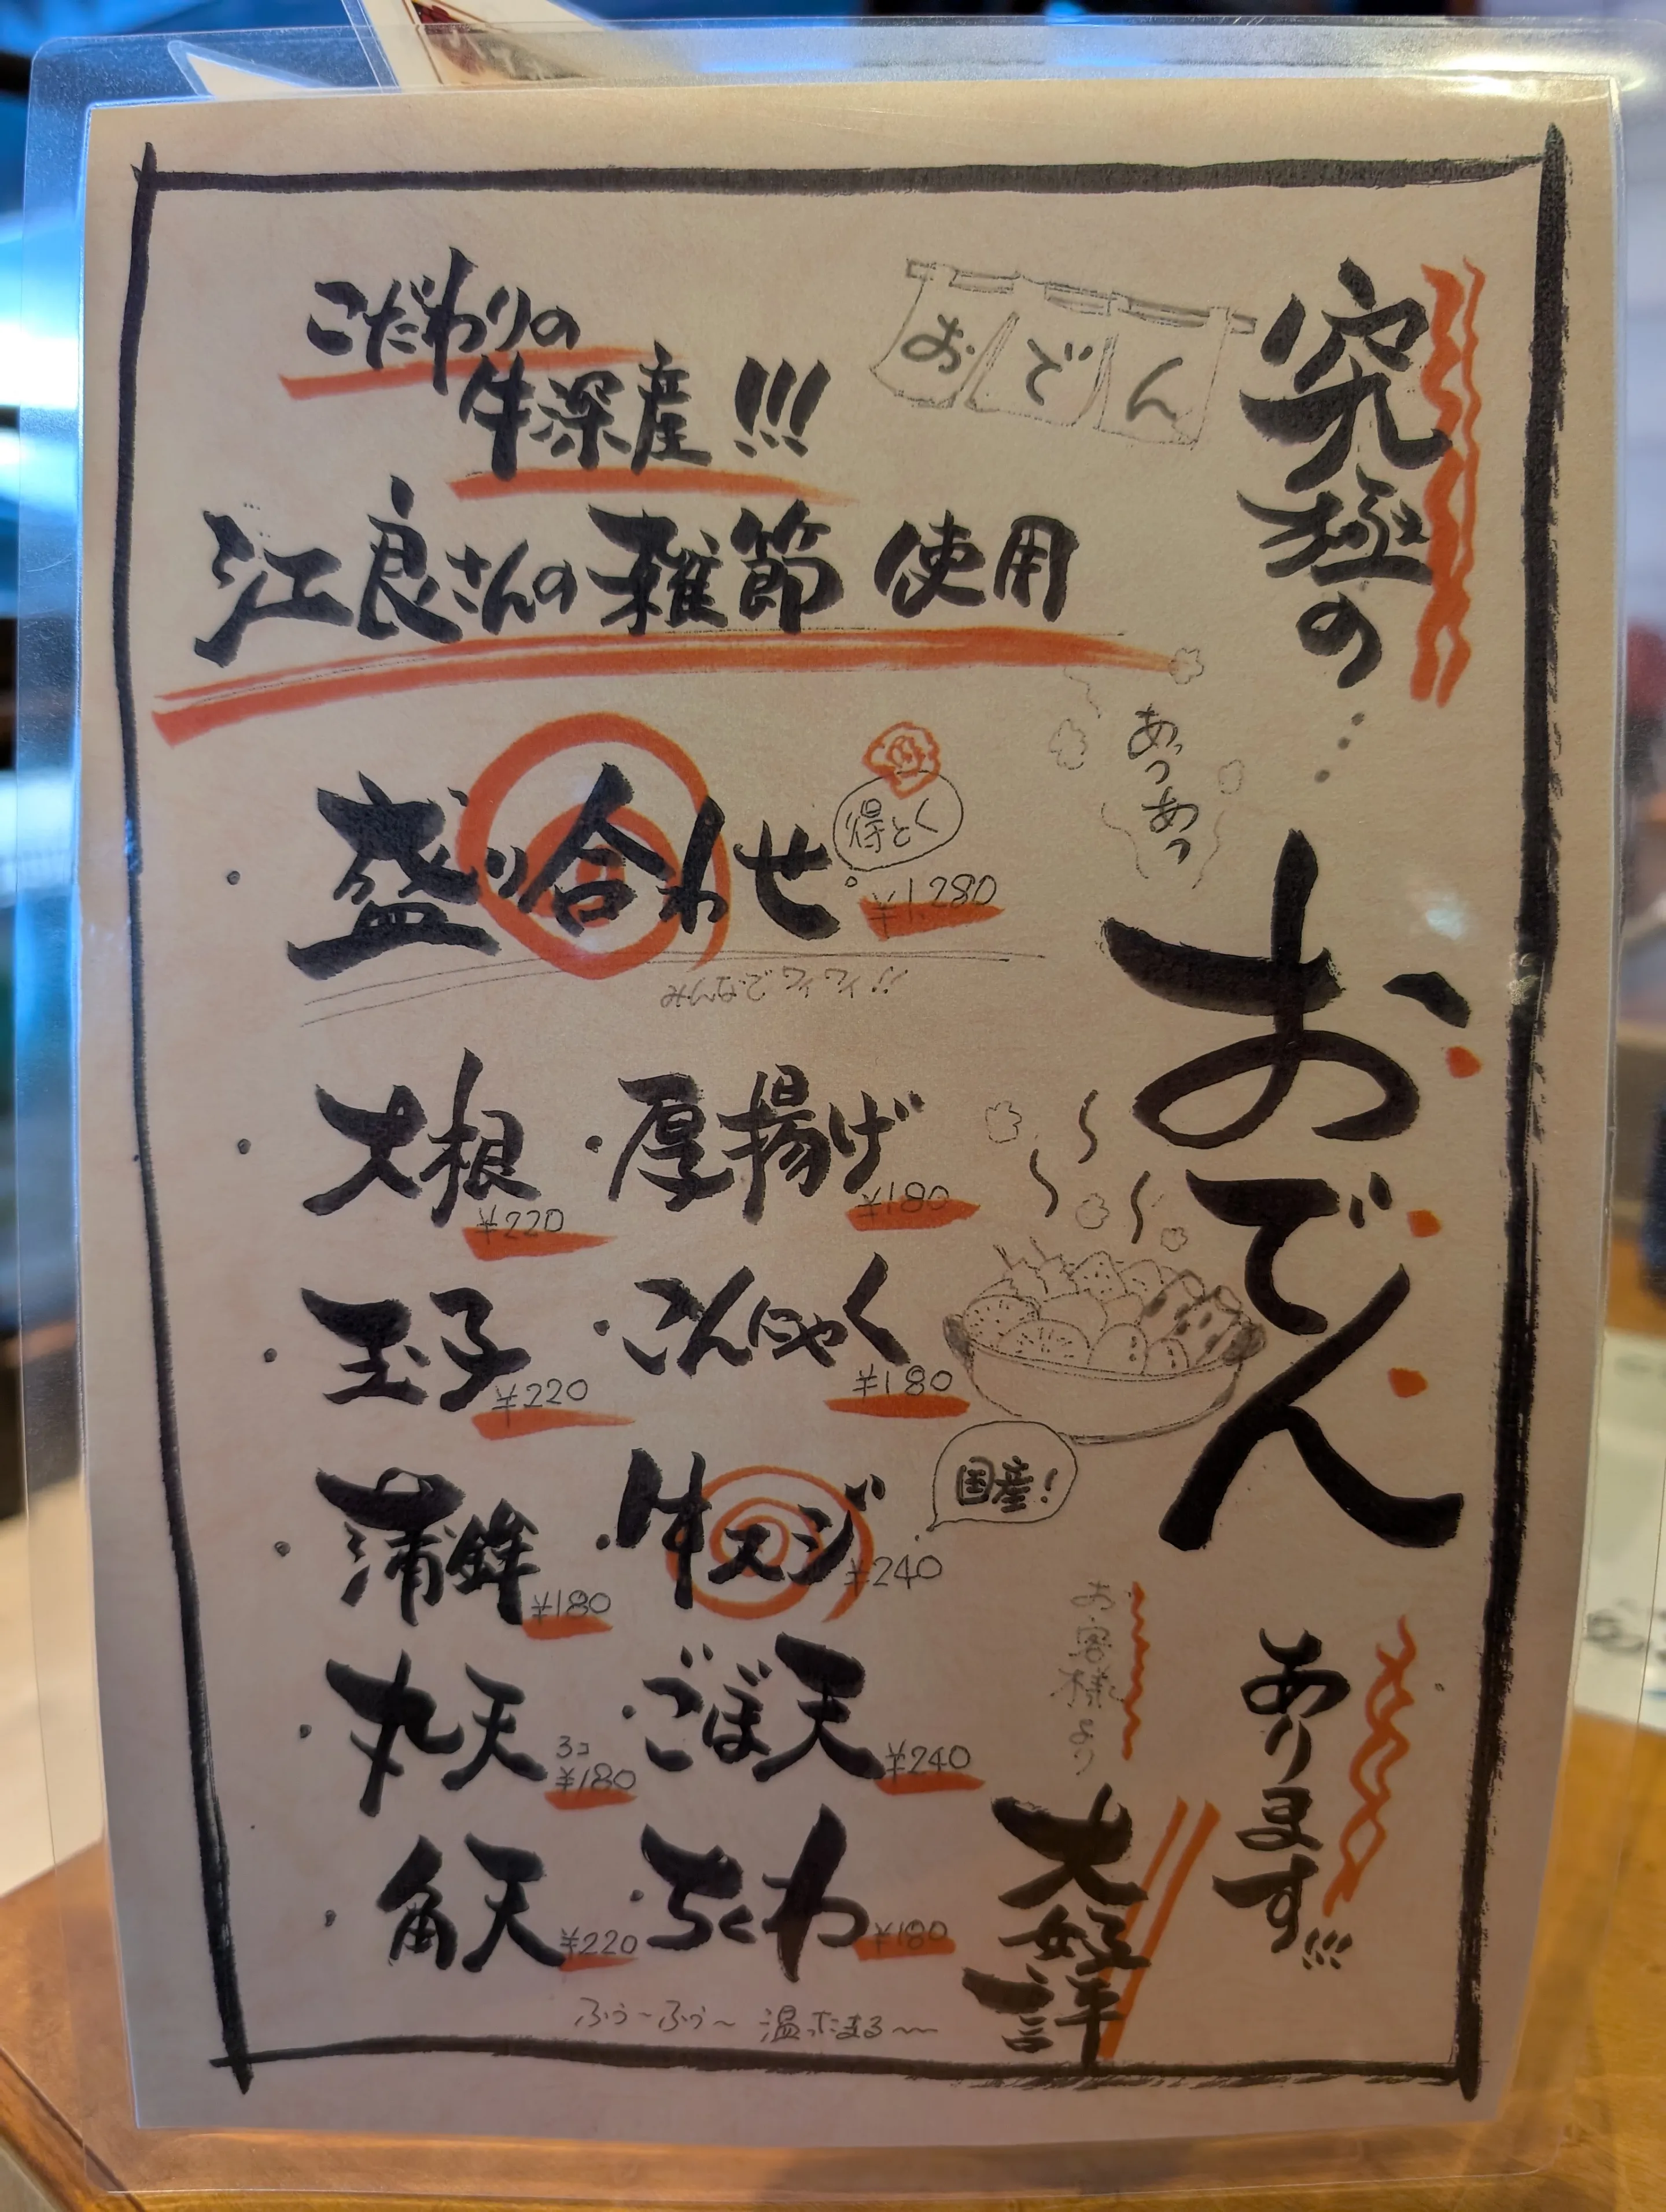 究極の…
おでん
あります!!!
おでん
あっつあつ
お客様より
大好評
こだわりの
牛深産!!!
江良さんの雑節使用
・盛り合わせ
得とく
¥1,280
・大根
¥220
・厚揚げ
¥180
・玉子
¥220
・こんにゃく
¥180
・蒲鉾
¥180
・牛スジ
¥240
国産!
・丸天
3コ
¥180
・ごぼ天
¥240
・角天
¥220
・ちくわ
¥180
ふぅ～ふぅ～ 温ったまる～～